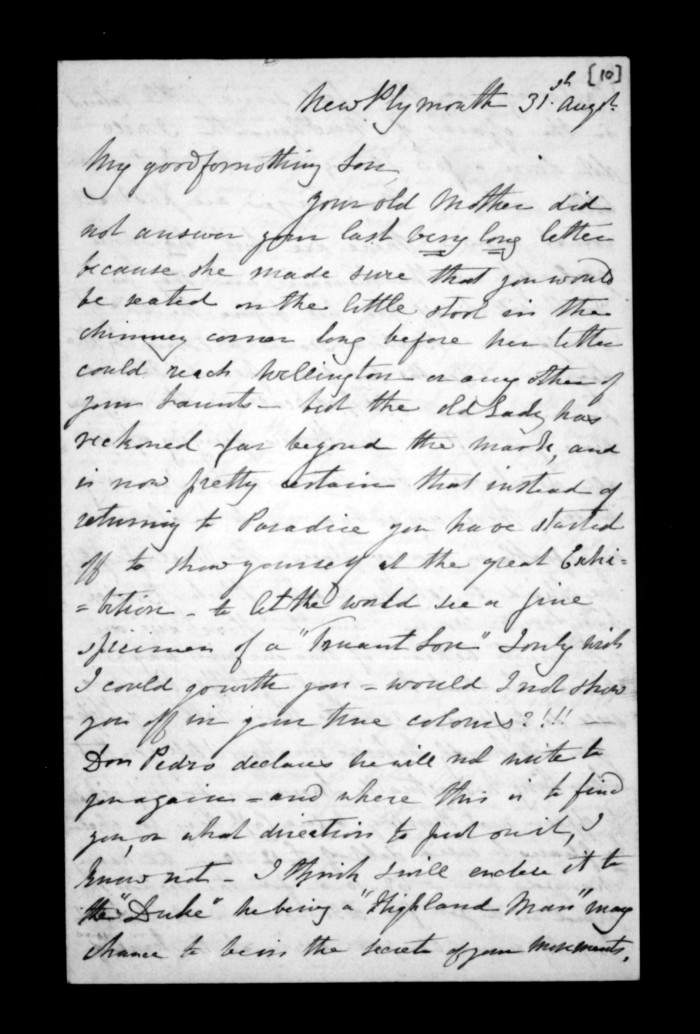 [10]
New Plymouth 31st. Augst.
My good for nothing Son
Your old Mother did
not answer your last very long letter
because she made sure that you would
be seated on the little stool in the
chimney corner long before her letter
could reach Wellington or any other of
your haunts - but the old Lady has
reckoned far beyond the mark, and
is now pretty certain that instead of
returning to Paradise you have started
off to show yourself at the great Exhi=
=bition - to let the world see a fine
specimen of a "Truant Son" I only wish
I could go with you - would I not show
you off in your true colours?!!! -
Don Pedro declares he will not write to
you again - and where this is to find
you, or what direction to put on it, I
know not - I think I will enclose it to
the "Duke" he being a "Highland Man" may
chance to be in the secrets of your movements.